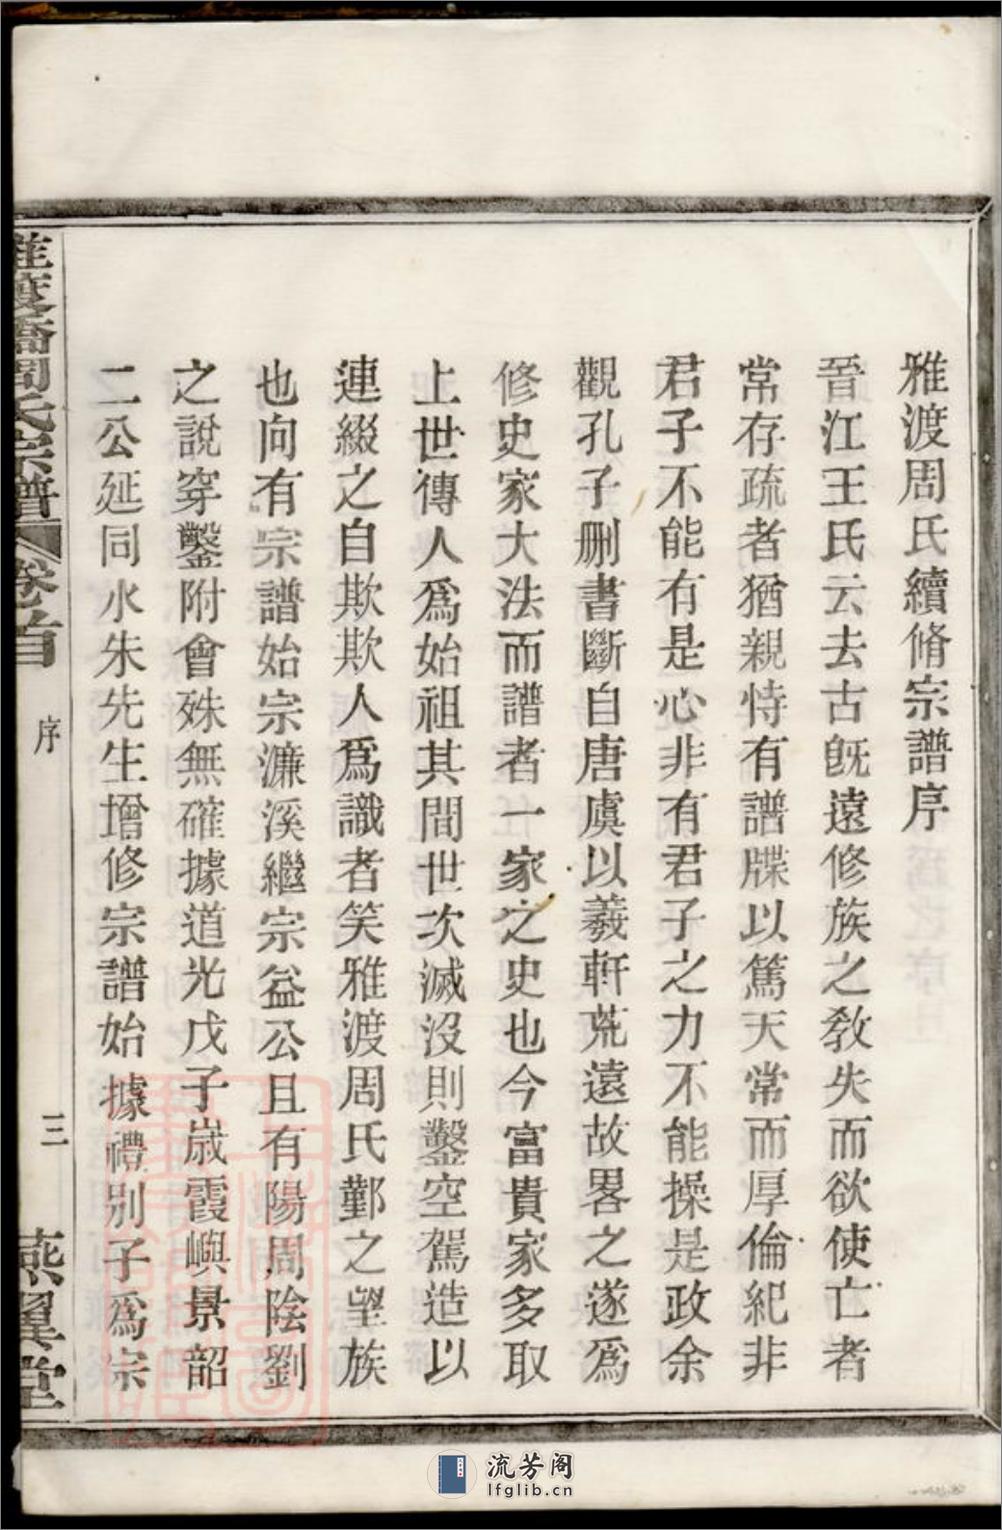 雅渡周氏續脩宗譜序
晉江王氏云去古旣遠修族之敎失而欲使亡者
常存疏者猶親恃有譜牒以篤天常而厚倫紀非
君子不能有是心非有君子之力不能操是政余
觀孔子刪書斷自唐虞以羲軒荒遠故畧之遂爲
修史家大法而譜者一家之史也今富貴家多取
上世傳人爲始祖其間世次滅沒則鑿空駕造以
連綴之自欺欺人爲識者笑雅渡周氏鄞之望族
也向有宗譜始宗濂溪繼宗益公且有陽周陰劉
之說穿鑿附會殊無確據道光戊子歲霞嶼景韶
二公延同水朱先生增修宗譜始據禮別子爲宗
雅渡橋周氏宗譜 卷首
序
三
燕翼堂
流芳阁
lfglib.cn